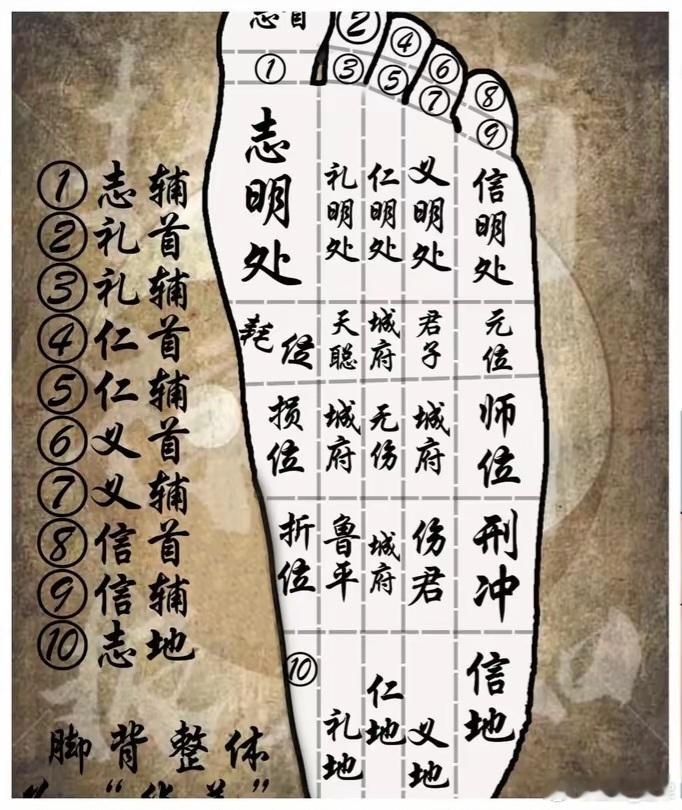 志首
②
④
⑥
⑧
①
③
⑤
⑦
⑨
志明处
礼明处
仁明处
义明处
信明处
耗位
天聪
城府
君子
元位
损位
城府
无伤
城府
师位
折位
鲁平
城府
伤君
刑冲
⑩
礼地
仁地
义地
信地
①志辅
②礼首
③礼辅
④仁首
⑤仁辅
⑥义首
⑦义辅
⑧信首
⑨信辅
⑩志地
脚背整体